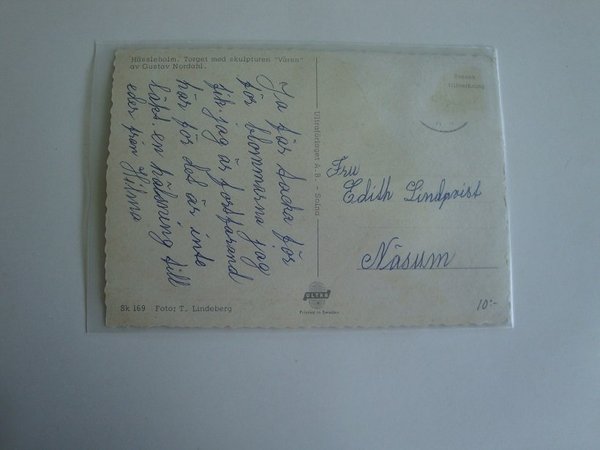 Hässleholm. Torget med skulpturen "Våren"
av Gustav Nordahl.
Ja får tacka för
för blommorna jag
fik jag är fortfarand
här för det är inte
läkt en hälsning till
eder från Hilma
Ultraförlaget A. B. - Solna
Fru
Edith Lindqvist
Näsum
ULTRA
Printed in Sweden
Sk 169 Foto: T. Lindeberg
10:-